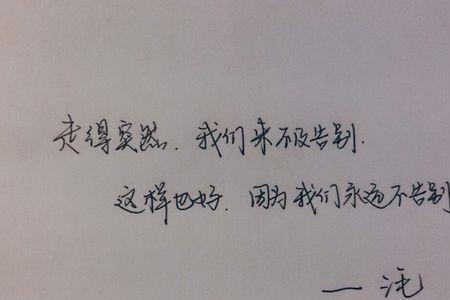 走得突然.我们来不及告别.
这样也好.因为我们永远不告别
—三毛